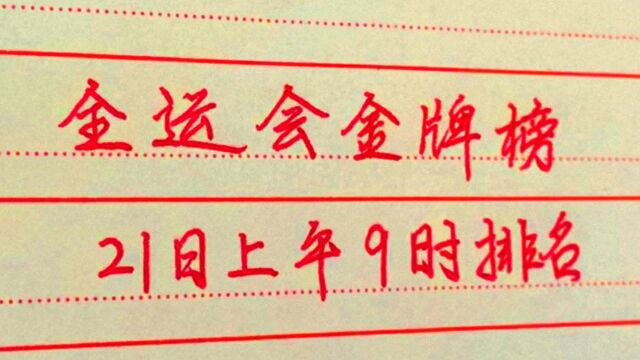 全运会金牌榜
21日上午9时排名